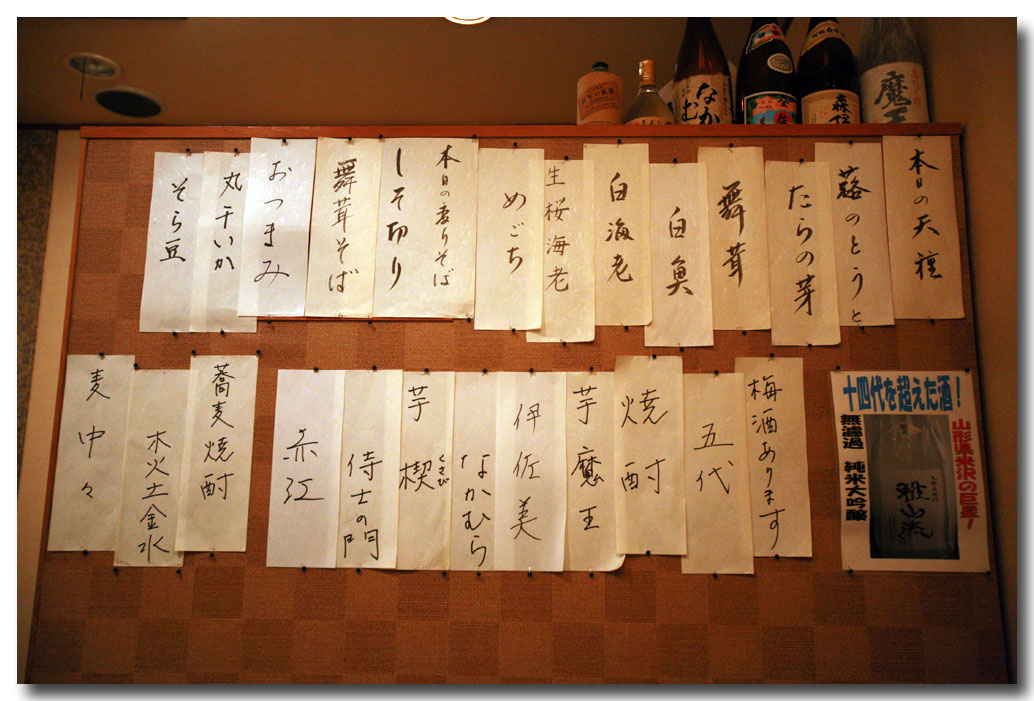 なかむ
森伊
魔王
本日の天種
蕗のとうと
たらの芽
舞茸
白魚
白海老
生桜海老
めごち
本日の変りそば
しそ切り
舞茸そば
おつまみ
丸干いか
そら豆
十四代を超えた酒!
山形県米沢の巨星!
無濾過 純米大吟醸
雅山流
梅酒あります
五代
焼酎
芋魔王
伊佐美
なかむら
芋楔
くさび
侍士の門
赤江
蕎麦焼酎
木火土金水
麦中々